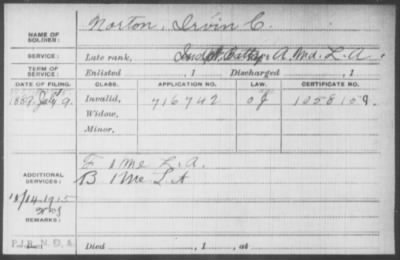 NAME OF SOLDIER: Norton, Irvin C.
SERVICE: Late rank, Batty A. Md. L. A.
TERM OF SERVICE: Enlisted , 1 Discharged , 1
DATE OF FILING. CLASS. APPLICATION NO. LAW. CERTIFICATE NO.
1889 July 9. Invalid, 716742 1258108.
Widow,
Minor,
F 1 Me L. A.
ADDITIONAL SERVICES: B 1 Me L A
REMARKS:
Died , 1 , at